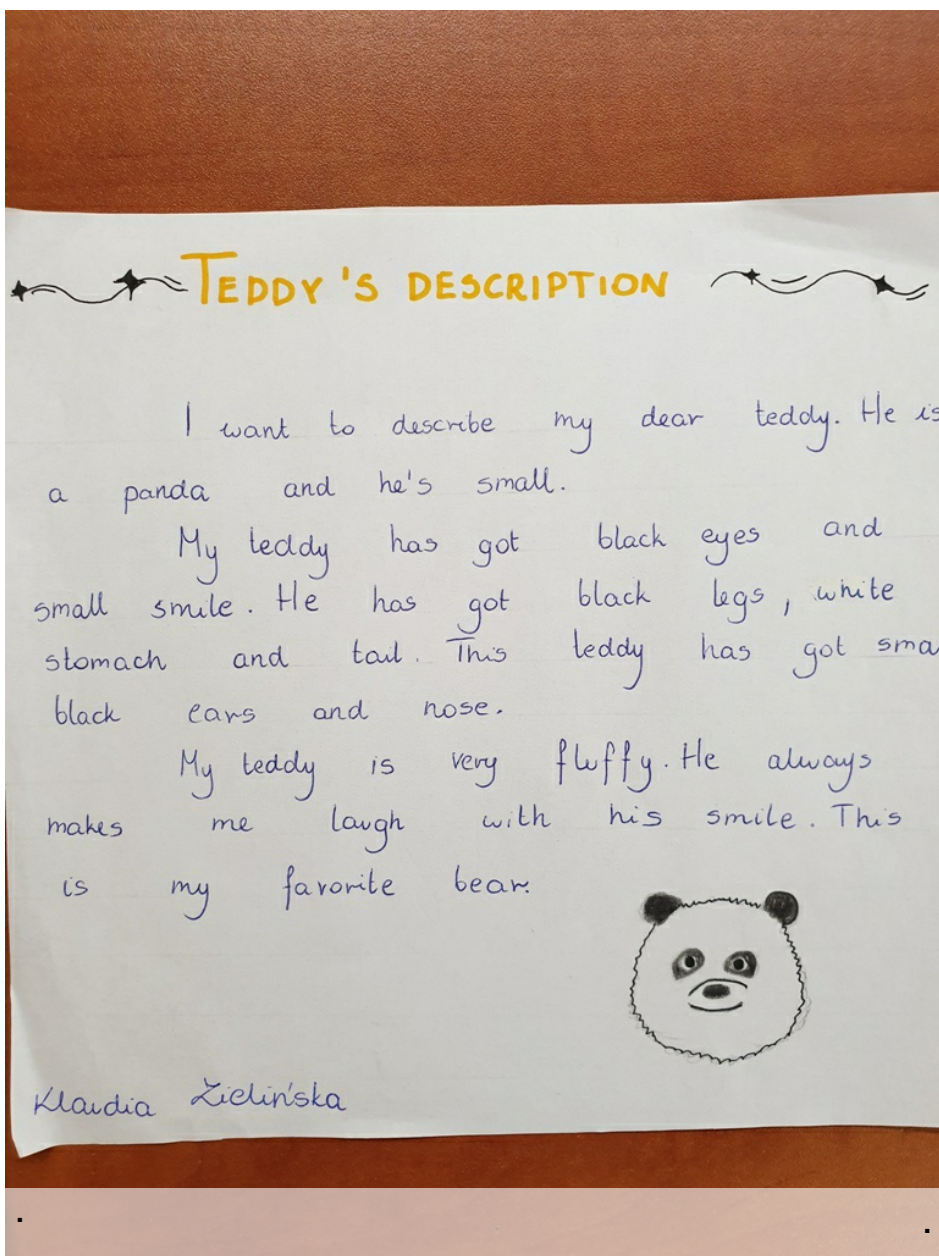 TEDDY'S DESCRIPTION
I want to describe my dear teddy. He is
a panda and he's small.
My teddy has got black eyes and
small smile. He has got black legs, white
stomach and tail. This teddy has got
black ears and nose.
My teddy is very fluffy. He always
makes me laugh with his smile. This
is my favorite bear.
Klaudia Zielińska